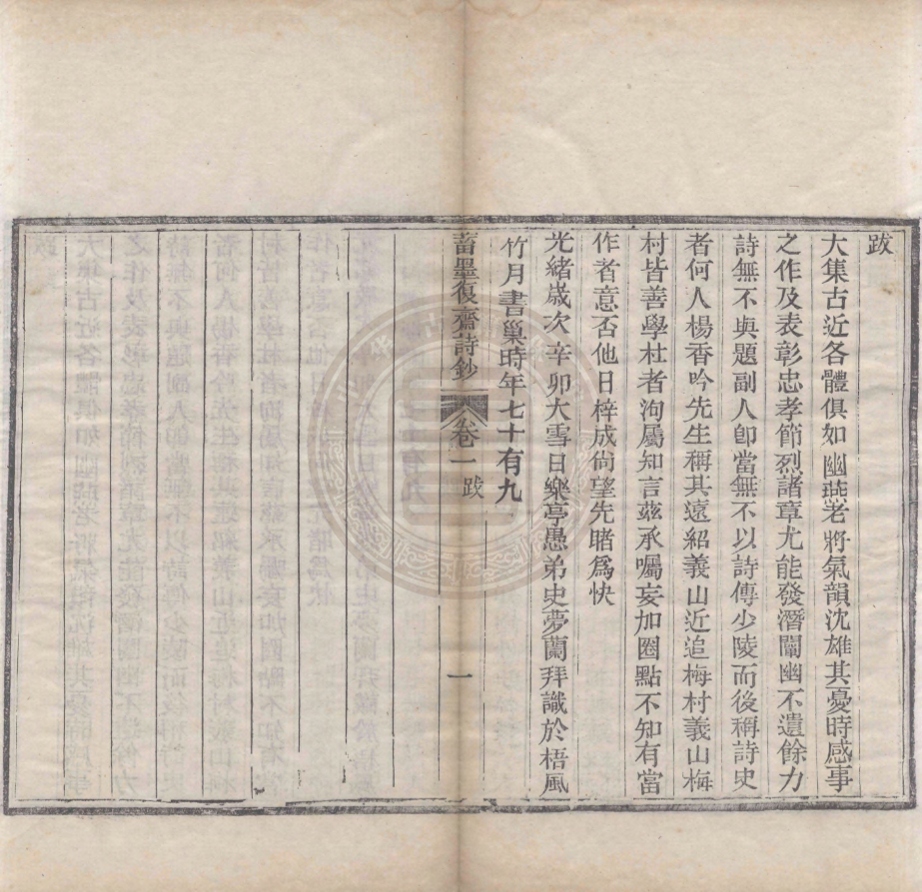 跋
大集古近各體俱如幽燕老將氣韻沈雄其憂時感事
之作及表彰忠孝節烈諸章尤能發潛闡幽不遺餘力
詩無不與題副人卽當無不以詩傳少陵而後稱詩史
者何人楊香吟先生稱其遠紹義山近追梅村義山梅
村皆善學杜者洵屬知言兹承囑妄加圈點不知有當
作者意否他日梓成尙望先睹爲快
光緒歲次辛卯大雪日樂亭愚弟史夢蘭拜識於梧風
竹月書巢時年七十有九
蓄墨復齋詩鈔 卷一 跋 一